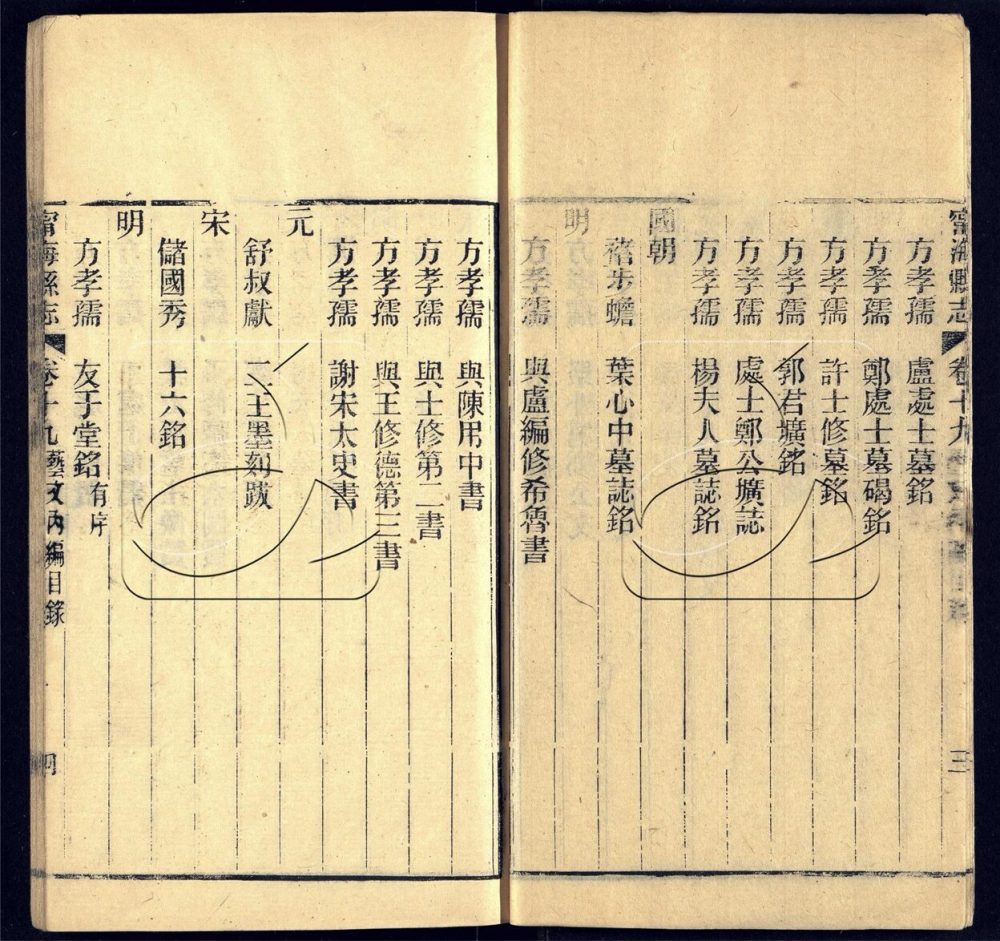 甯海縣志 卷十九 三
方孝孺 盧處士墓銘
方孝孺 鄭處士墓碣銘
方孝孺 許士修墓銘
方孝孺 郭君壙銘
方孝孺 處士鄭公壙誌
方孝孺 楊夫人墓誌銘
國朝
步蟾 葉心中墓誌銘
明
方孝孺 與盧編修希魯書
方孝孺 與陳用中書
方孝孺 與士修第二書
方孝孺 與王修德第三書
方孝孺 謝宋太史書
元
舒叔獻 二王墨刻跋
宋
儲國秀 十六銘
明
方孝孺 友于堂銘有序
甯海縣志 卷十九 藝文內編目錄 四